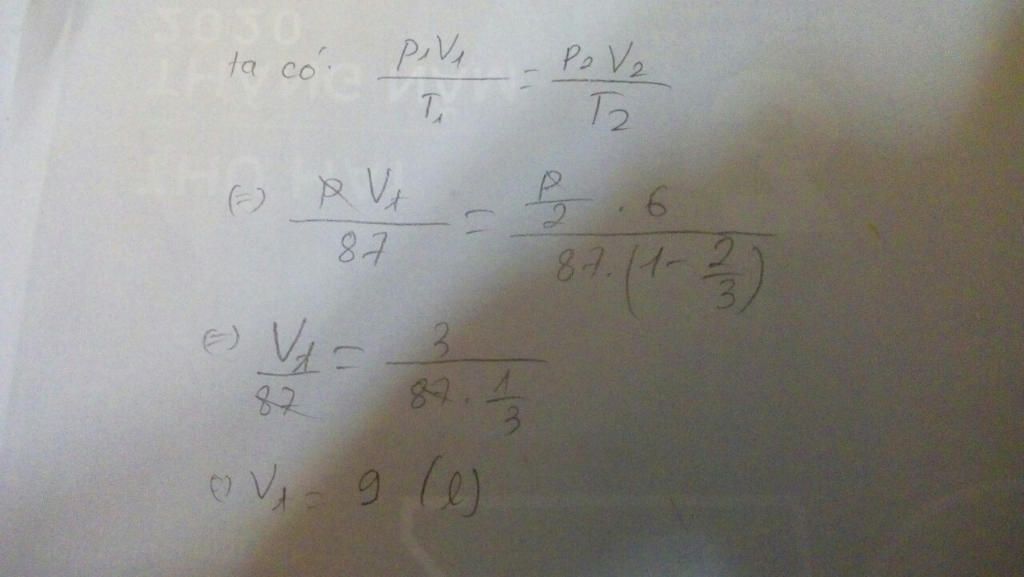 ta có: \frac{P_1 V_1}{T_1} = \frac{P_2 V_2}{T_2}
(=) \frac{P V_1}{87} = \frac{\frac{P}{2} . 6}{87.(1-\frac{2}{3})}
(=) \frac{V_1}{87} = \frac{3}{87.\frac{1}{3}}
(=) V_1 = 9 (l)